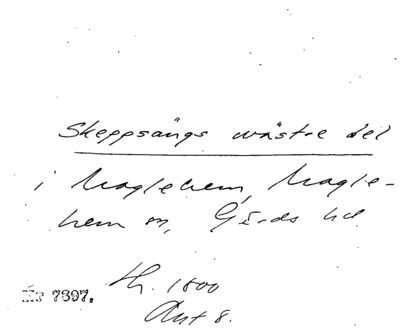 Skeppsängs wästre del
i Maglehem, Magle-
hem sn, Gärds hd
th. 1800
Nr 7397.
Akt 8.